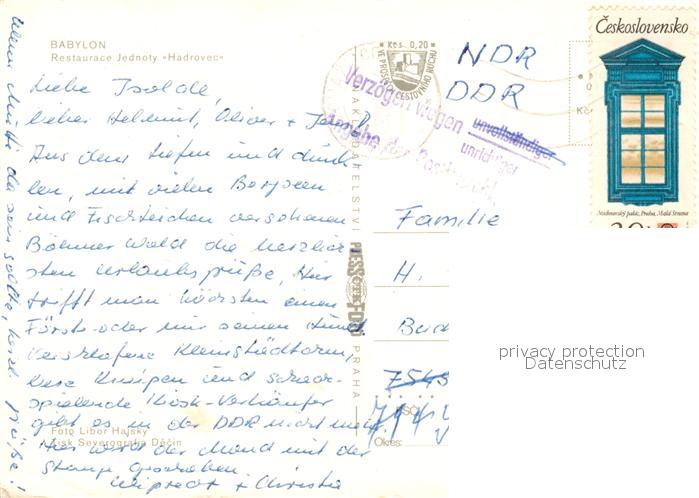 BABYLON
Restaurace Jednoty »Hadrovec«
Liebe Isolde,
lieber Helmut, Oliver +
Aus dem tiefen und dunk-
len, mit vielen
und Fischteichen versehenen
Böhmer Wald die herzlich-
sten Urlaubsgrüße. Hier
trifft man höchsten einen
Förster oder mit seinem Hund
verschlafene Kleinstädtchen,
Kneipen und
spielende Kiosk-Verkäufer
gibt es in der DDR nicht mehr.
Hier wird der Mond mit der
Stange geschoben.
+ Christa
Wenn Mutti da sein sollte, herzl. Grüße!
Foto Libor Hajský
Tisk Severografia Děčín
NAKLADATELSTVÍ
PRESSFOTO
PRAHA
Kčs 0,20
VE PROSPĚCH CESTOVNÍHO RUCHU
Verzögert wegen
unvollständiger
unrichtiger
Angabe der Postleitzahl
NDR
DDR
Familie
H.
7545
PSČ
Okres:
Československo
Praha, Malá Strana
privacy protection
Datenschutz